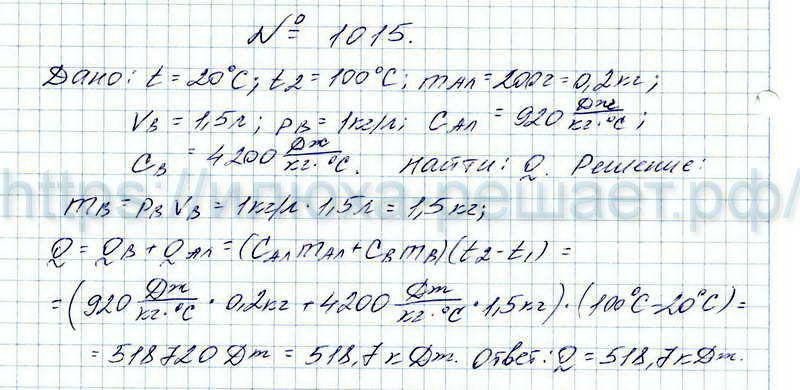 № 1015.
Дано: t = 20°С; t2 = 100°С; mАл = 200г = 0,2кг;
VВ = 1,5л; ρВ = 1кг/л; САл = 920 Дж/кг·°С;
СВ = 4200 Дж/кг·°С. Найти: Q. Решение:
https://ипоха.решает.рф/
mВ = ρВ VВ = 1кг/л · 1,5л = 1,5кг;
Q = QВ + QАл = (САл mАл + СВ mВ)(t2 - t1) =
= (920 Дж/кг·°С · 0,2кг + 4200 Дж/кг·°С · 1,5кг) · (100°С - 20°С) =
= 518720 Дж = 518,7 кДж. Ответ: Q = 518,7кДж.